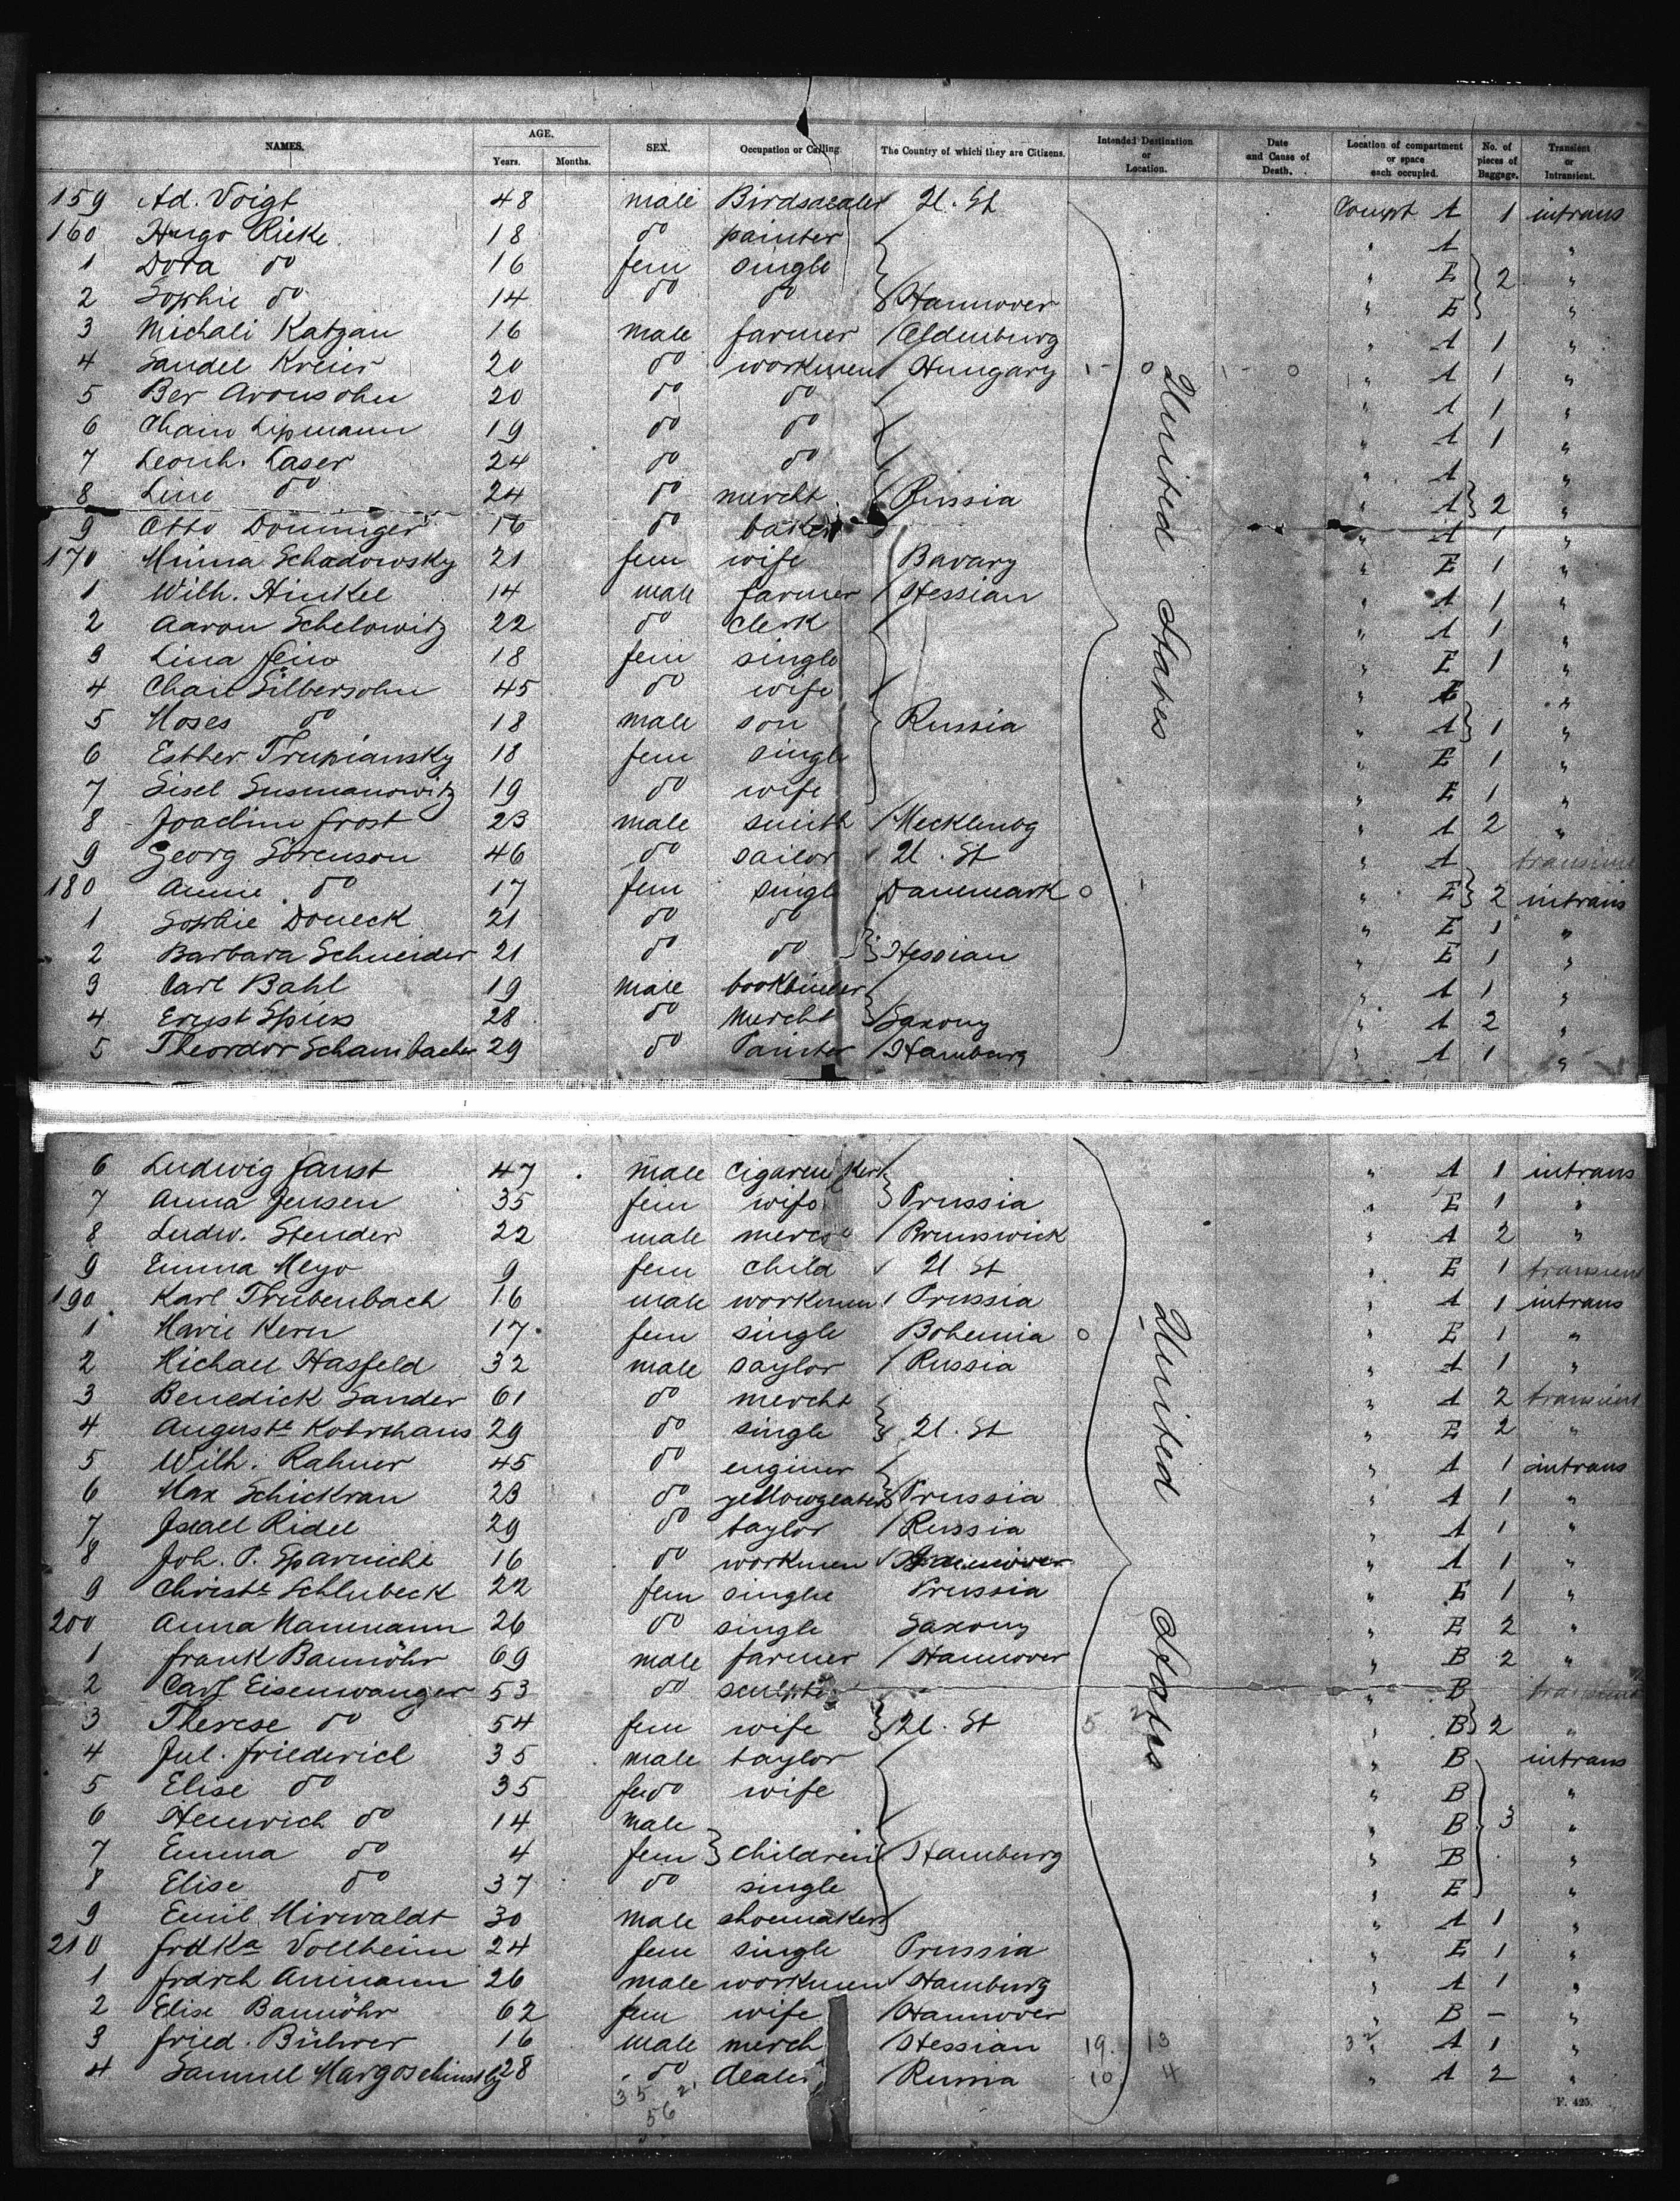 NAMES. AGE. Years. Months. SEX. Occupation or Calling. The Country of which they are Citizens. Intended Destination or Location. Date and Cause of Death. Location of compartment or space each occupied. No. of pieces of Baggage. Transient or Intransient.
159 Ad. Voigt 48 male Birdsdealer U. St Compt A 1 intrans
160 Hugo Ricke 18 do painter " A "
1 Dora do 16 fem single " E 2 "
2 Sophie do 14 do do Hannover " E "
3 Michali Katzan 16 male farmer Oldenburg " A 1 "
4 Sandel Kreier 20 do workmen Hungary " A 1 "
5 Ber Aronsohn 20 do do " A 1 "
6 Chaim Lipmann 19 do do " A 1 "
7 Leonh. Laser 24 do do " A "
8 Line do 24 do mercht Russia " A 2 "
9 Otto Doninger 16 do baker " A 1 "
170 Minna Schadowsky 21 fem wife Bavary " E 1 "
1 Wilh. Hinkel 14 male farmer Hessian " A 1 "
2 Aaron Schelowitz 22 do clerk " A 1 "
3 Lina Fein 18 fem single " E 1 "
4 Chaie Silbersohn 45 do wife " E "
5 Moses do 18 male son Russia " A 1 "
6 Esther Trupiansky 18 fem single " E 1 "
7 Sisel Susmanowitz 19 do wife " E 1 "
8 Joachim Frost 23 male smith Mecklenbg " A 2 "
9 Georg Sörenson 46 do sailor U. St " A transient
180 Annie do 17 fem single Dannmark " E 2 intrans
1 Sophie Doneck 21 do do " E 1 "
2 Barbara Schneider 21 do do Hessian " E 1 "
3 Carl Bahl 19 male bookbinder " A 1 "
4 Ernst Spiess 28 do mercht Saxony " A 2 "
5 Theordor Schambacher 29 do Painter Hamburg " A 1 "
United States
6 Ludwig Faust 47 male " A 1 intrans
7 Anna Jensen 35 fem wife Prussia " E 1 "
8 Ludw. Stender 22 male Brunswick " A 2 "
9 Emma Meyo 9 fem child U St " E 1 transient
190 Karl Trubenbach 16 male workmen Prussia " A 1 intrans
1 Marie Kern 17 fem single Bohemia " E 1 "
2 Michael Hasfeld 32 male saylor Russia " A 1 "
3 Benedick Sander 61 do mercht " A 2 transient
4 Auguste Kohrthaus 29 do single U. St " E 2 "
5 Wilh. Rahner 45 do enginer " A 1 intrans
6 Max Schickran 23 do Prussia " A 1 "
7 Israel Ridel 29 do taylor Russia " A 1 "
8 Joh. P. 16 do workmen Hannover " A 1 "
9 Christe Schlubeck 22 fem single Prussia " E 1 "
200 Anna Naumann 26 do single Saxony " E 2 "
1 Frank Bannöhr 69 male farmer Hannover " B 2 "
2 Carl Eisenwanger 53 do " B transient
3 Therese do 54 fem wife U. St " B 2 "
4 Jul. Friederich 35 male taylor " B intrans
5 Elise do 35 fem do wife " B "
6 Heinrich do 14 male " B 3 "
7 Emma do 4 fem children Hamburg " B "
8 Elise do 37 do single " E "
9 Emil Mirwaldt 30 male shoemaker " A 1 "
210 Frdka Vollheim 24 fem single Prussia " E 1 "
1 Frdrch Ammann 26 male workmen Hamburg " A 1 "
2 Elise Bannöhr 62 fem wife Hannover " B - "
3 Fried. Bührer 16 male merch Hessian 19. 13 " A 1 "
4 Samuel Margoschinsky 28 do dealer Russia 10 4 " A 2 "
United States
35 2
56
F. 425.